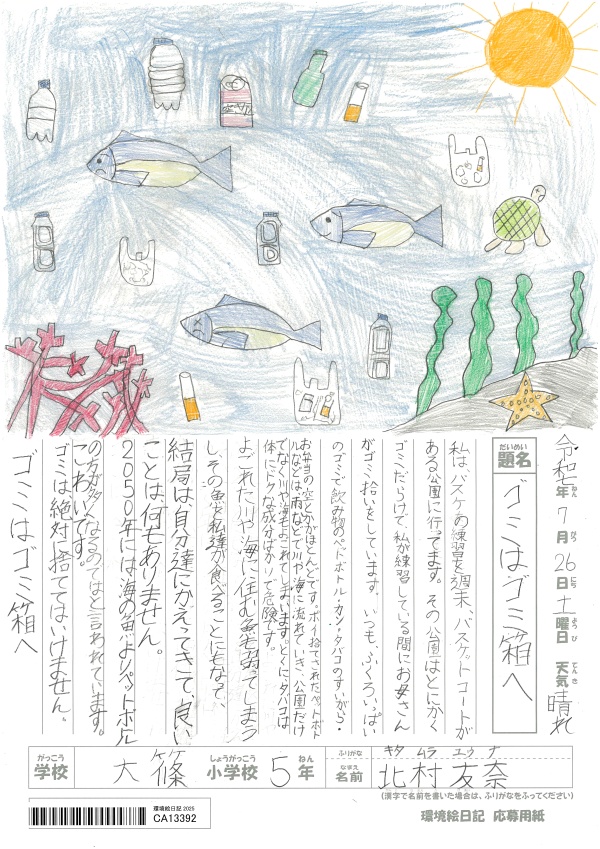 令和七年7月26日土曜日 天気 晴れ
ねん がつ にち ようび てんき
だいめい
題名 ゴミはゴミ箱へ
私は、バスケの練習を週末、バスケットコートが
ある公園に行ってます。その公園はとにかく
ゴミだらけで、私が練習している間にお母さん
がゴミ拾いをしています。いつも、ふくろいっぱい
のゴミで飲み物のペットボトル・カン・タバコのすいがら・
お弁当の空とかがほとんどです。ポイ捨てされたペットボト
ルなどは、雨などで川や海に流れていき、公園だけ
でなく川や海もよごれてしまいます。とくに、タバコは
体にドクな成分ばかりで危険です。
よごれた川や海に住む魚も弱ってしまう
し、その魚を私達が食べることにもなって、
結局は、自分達にかえってきて、良い
ことは、何もありません。
2050年には海の魚よりペットボトル
の方が多くなるのではと言われています。
こわいです。
ゴミは絶対捨ててはいけません。
ゴミはゴミ箱へ
がっこう しょうがっこう ねん ふりがな キタ ムラ ユウ ナ
学校 大篠 小学校 5年 なまえ 名前 北村友奈
(漢字で名前を書いた場合は、ふりがなをふってください)
環境絵日記 2025
CA13392
環境絵日記 応募用紙